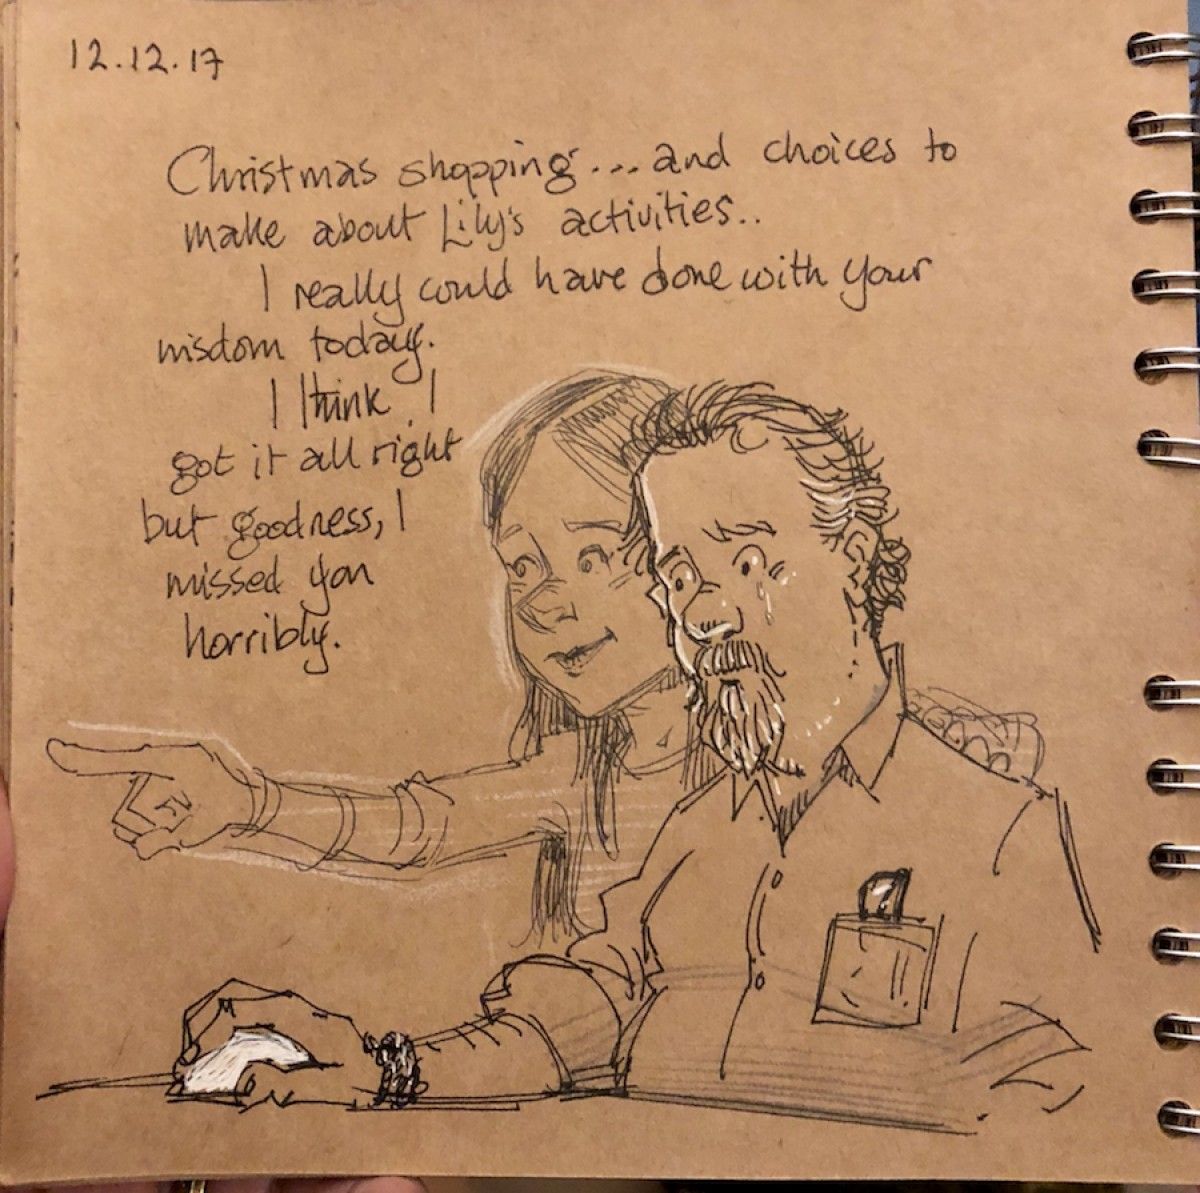 12.12.17
Christmas shopping...and choices to
make about Lily's activities..
I really could have done with your
wisdom today.
I think I
got it all right
but goodness, I
missed you
horribly.